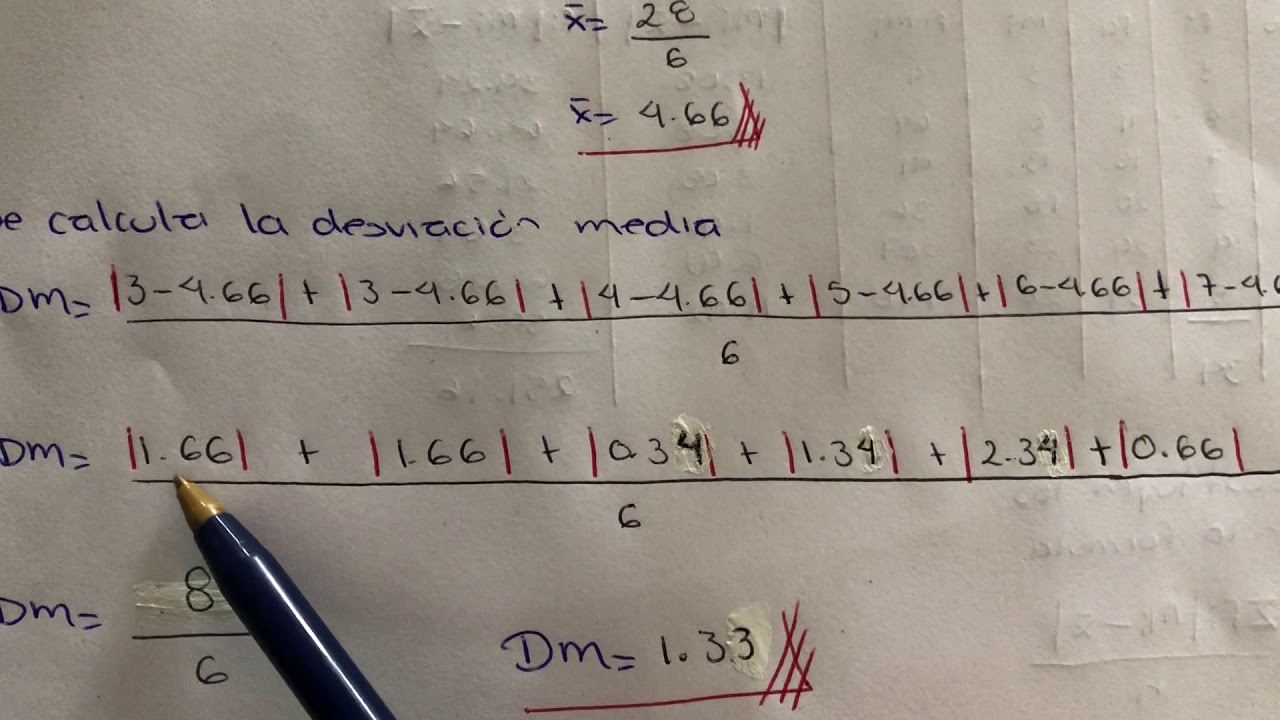 x̄= 28
6
x̄= 4.66
e calcula la desviación media
Dm= |3-4.66| + |3-4.66| + |4-4.66| + |5-4.66| + |6-4.66| + |7-4.6
6
Dm= |1.66| + |1.66| + |0.34| + |1.34| + |2.34| + |0.66|
6
Dm= 8
6
Dm= 1.33